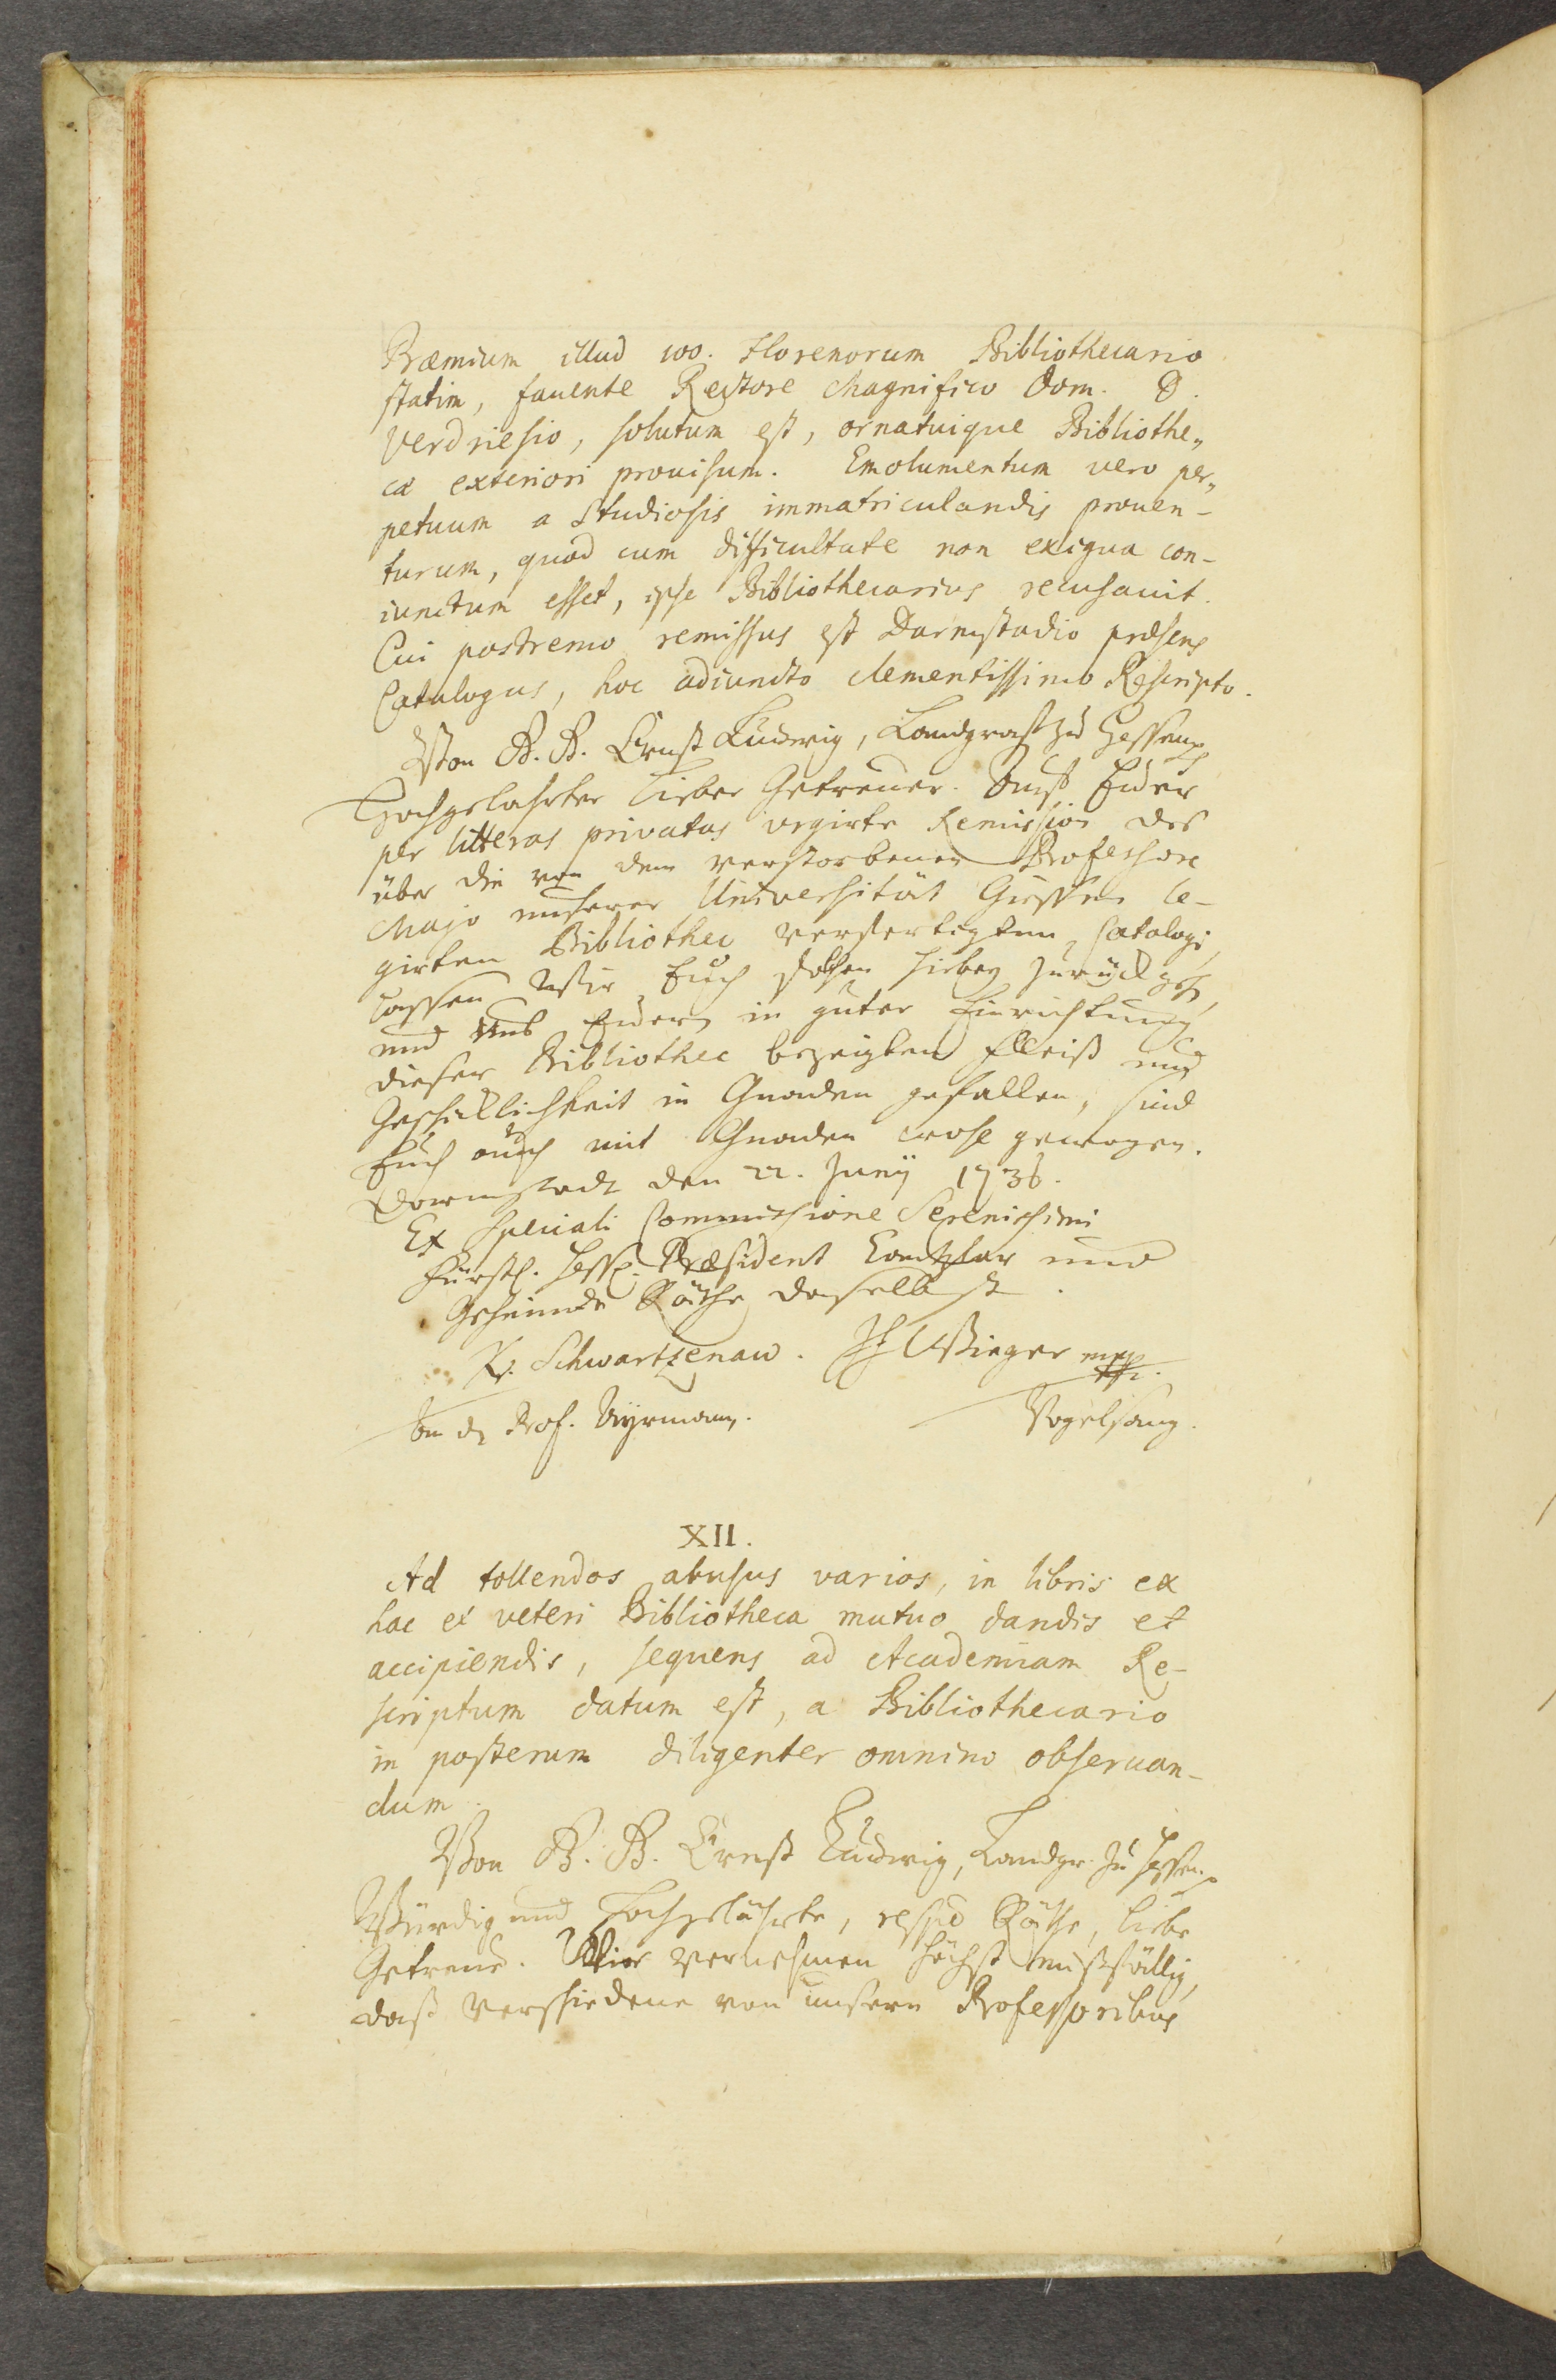 Præmium illud 100. Florenorum Bibliothecario
statim, fauente Rectore Magnifico Dom. D.
Verdriesio, solutum est, ornatuique Bibliothe„
cæ exteriori prouisum. Emolumentum vero per„
petuum a Studiosis immatriculandis prouen-
turum, quod cum difficultate non exigua con-
iunctum esset, ipse Bibliothecarius recusauit.
Cui postremo remissus est Darmstadio præsens
Catalogus, hoc adiuncto clementissimo Rescripto.
Von G. G. Ernst Ludwig, Landgraf zu Hessen
Hochgelahrter lieber Getreuer. Auf Eure
per litteras privatas urgirte Remission des
über die von dem verstorbenen Professore
Majo unserer Universität Giessen le-
girten Bibliothec verfertigten Catalogi,
lassen Wir Euch solchen hierbey zurück gehen,
und Uns Euern in guter Einrichtung
dieser Bibliothec bezeigten Fleiß und
Geschicklichkeit in Gnaden gefallen, sind
Euch auch mit Gnaden wohl gewogen.
Darmstadt den 22. Junij 1736.
Ex speciali Commissione Serenissimi
Fürstl. Hess. Præsident Cantzlar und
Geheimde Räthe daselbst.
Schwartzenau. Wieger mpp.
An den Prof. Ayrmann. Vogelsang.
XII.
Ad tollendos abusus varios, in libris ex
hac et veteri Bibliotheca mutuo dandis et
accipiendis, sequens ad Academiam Re-
scriptum datum est, a Bibliothecario
in posterum diligenter omnino obseruan-
dum.
Von G. G. Ernst Ludwig, Landgr. zu Hessen
Würdig und Hochgelahrte, resp. Räthe, liebe
Getreue. Wir vernehmen höchst mißfällig,
daß verschiedene von unsern Professoribus